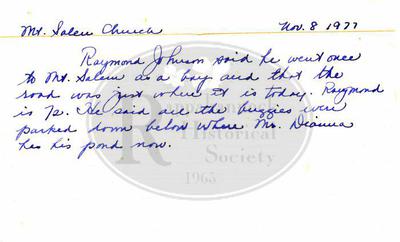 Mt. Salem Church Nov. 8 1977
Raymond Johnson said he went once
to Mt. Salem as a boy and that the
road was just where it is today. Raymond
is 72. He said all the buggies were
parked down below where Mr. Dianna
has his pond now.
R
Historical
Society
1965